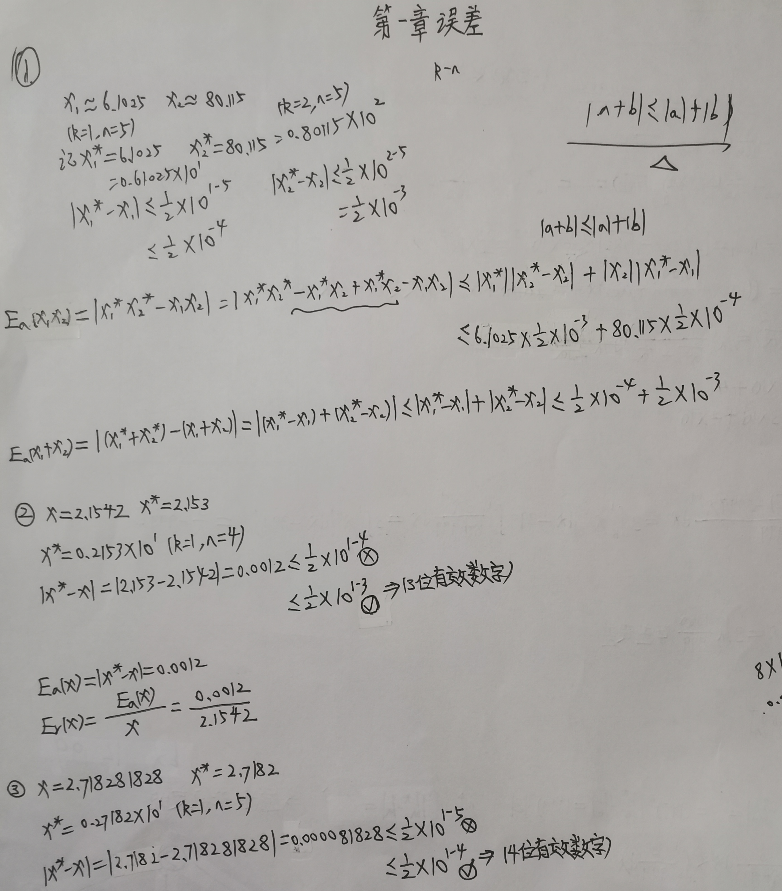 第一章 误差
①
k-n
x₁≈6.1025 x₂≈80.115 (k=2,n=5)
(k=1,n=5)
记x₁*=6.1025 x₂*=80.115=0.80115×10²
=0.61025×10¹
|x₁*-x₁|≤½×10¹⁻⁵ |x₂*-x₂|≤½×10²⁻⁵
≤½×10⁻⁴ =½×10⁻³
|a+b|≤|a|+|b|
△
|a+b|≤|a|+|b|
Eₐ(x₁x₂)=|x₁*x₂*-x₁x₂|=|x₁*x₂*-x₁*x₂+x₁*x₂-x₁x₂|≤|x₁*||x₂*-x₂|+|x₂||x₁*-x₁|
≤6.1025×½×10⁻³+80.115×½×10⁻⁴
Eₐ(x₁+x₂)=|(x₁*+x₂*)-(x₁+x₂)|=|(x₁*-x₁)+(x₂*-x₂)|≤|x₁*-x₁|+|x₂*-x₂|≤½×10⁻⁴+½×10⁻³
② x=2.1542 x*=2.153
x*=0.2153×10¹ (k=1,n=4)
|x*-x|=|2.153-2.1542|=0.0012≤½×10¹⁻⁴ ⊗
≤½×10¹⁻³ ✓⇒(3位有效数字)
Eₐ(x)=|x*-x|=0.0012
Eᵣ(x)=Eₐ(x)/x=0.0012/2.1542
8×1
0.
③ x=2.718281828 x*=2.7182
x*=0.27182×10¹ (k=1,n=5)
|x*-x|=|2.7182-2.718281828|=0.000081828≤½×10¹⁻⁵ ⊗
≤½×10¹⁻⁴ ✓⇒(4位有效数字)